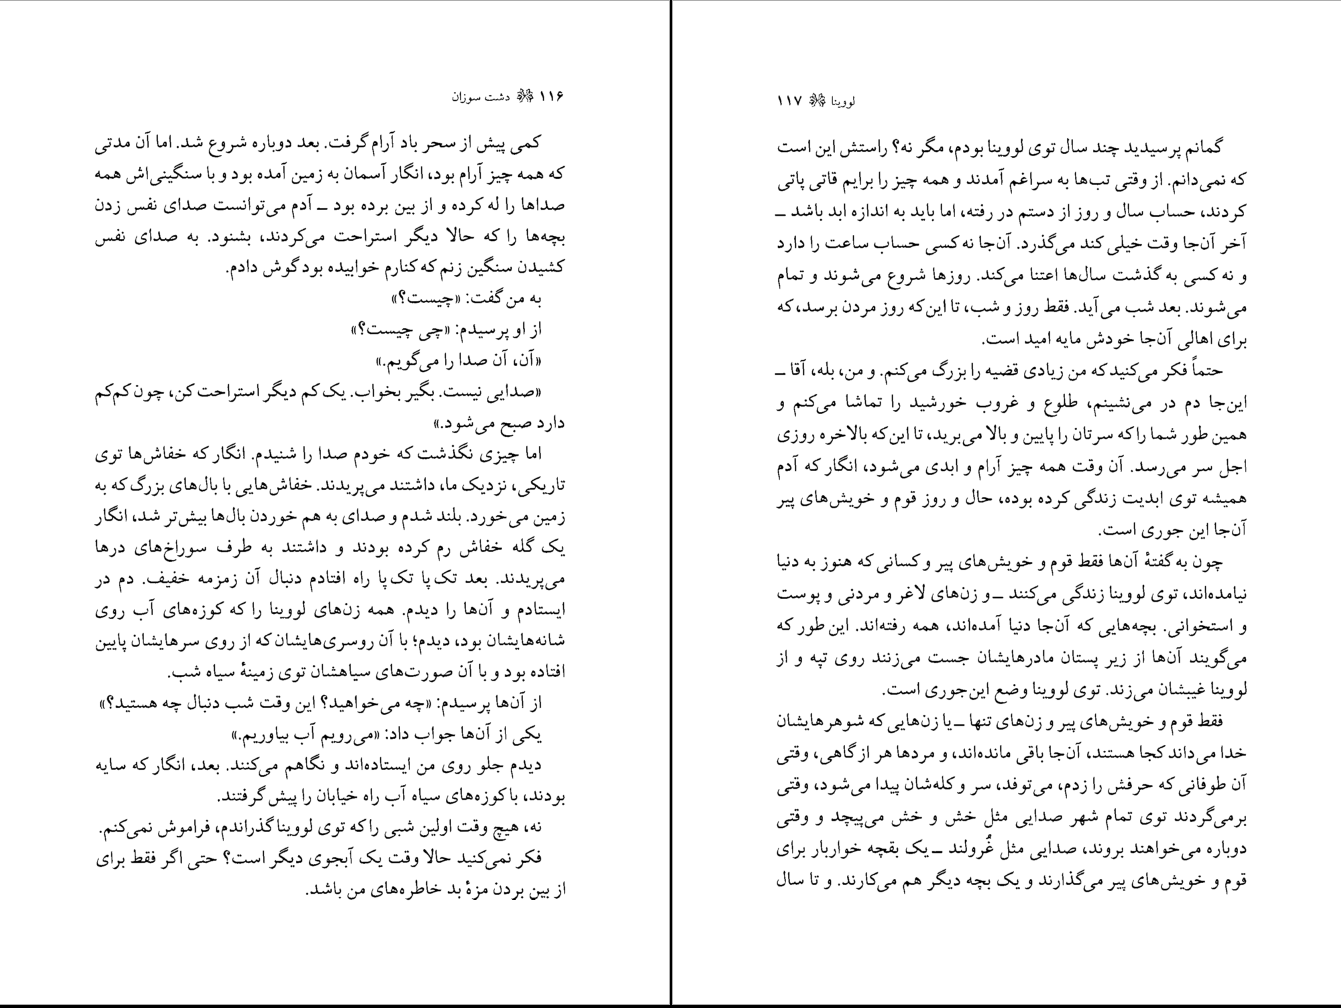 ۱۱۶ دشت سوزان
کمی پیش از سحر باد آرام گرفت. بعد دوباره شروع شد. اما آن مدتی
که همه چیز آرام بود، انگار آسمان به زمین آمده بود و با سنگینی‌اش همه
صداها را له کرده و از بین برده بود ــ آدم می‌توانست صدای نفس زدن
بچه‌ها را که حالا دیگر استراحت می‌کردند، بشنود. به صدای نفس
کشیدن سنگین زنم که کنارم خوابیده بود گوش دادم.
به من گفت: «چیست؟»
از او پرسیدم: «چی چیست؟»
«آن، آن صدا را می‌گویم.»
«صدایی نیست. بگیر بخواب. یک کم دیگر استراحت کن، چون کم‌کم
دارد صبح می‌شود.»
اما چیزی نگذشت که خودم صدا را شنیدم. انگار که خفاش‌ها توی
تاریکی، نزدیک ما، داشتند می‌پریدند. خفاش‌هایی با بال‌های بزرگ که به
زمین می‌خورد. بلند شدم و صدای به هم خوردن بال‌ها بیش‌تر شد، انگار
یک گله خفاش رم کرده بودند و داشتند به طرف سوراخ‌های درها
می‌پریدند. بعد تک پا تک پا راه افتادم دنبال آن زمزمه خفیف. دم در
ایستادم و آن‌ها را دیدم. همه زن‌های لووینا را که کوزه‌های آب روی
شانه‌هایشان بود، دیدم؛ با آن روسری‌هایشان که از روی سرهایشان پایین
افتاده بود و با آن صورت‌های سیاهشان توی زمینهٔ سیاه شب.
از آن‌ها پرسیدم: «چه می‌خواهید؟ این وقت شب دنبال چه هستید؟»
یکی از آن‌ها جواب داد: «می‌رویم آب بیاوریم.»
دیدم جلو روی من ایستاده‌اند و نگاهم می‌کنند. بعد، انگار که سایه
بودند، با کوزه‌های سیاه آب راه خیابان را پیش گرفتند.
نه، هیچ وقت اولین شبی را که توی لووینا گذراندم، فراموش نمی‌کنم.
فکر نمی‌کنید حالا وقت یک آبجوی دیگر است؟ حتی اگر فقط برای
از بین بردن مزهٔ بد خاطره‌های من باشد.
لووینا ۱۱۷
گمانم پرسیدید چند سال توی لووینا بودم، مگر نه؟ راستش این است
که نمی‌دانم. از وقتی تب‌ها به سراغم آمدند و همه چیز را برایم قاتی پاتی
کردند، حساب سال و روز از دستم در رفته، اما باید به اندازه ابد باشد ــ
آخر آن‌جا وقت خیلی کند می‌گذرد. آن‌جا نه کسی حساب ساعت را دارد
و نه کسی به گذشت سال‌ها اعتنا می‌کند. روزها شروع می‌شوند و تمام
می‌شوند. بعد شب می‌آید. فقط روز و شب، تا این‌که روز مردن برسد، که
برای اهالی آن‌جا خودش مایه امید است.
حتماً فکر می‌کنید که من زیادی قضیه را بزرگ می‌کنم. و من، بله، آقا ــ
این‌جا دم در می‌نشینم، طلوع و غروب خورشید را تماشا می‌کنم و
همین طور شما را که سرتان را پایین و بالا می‌برید، تا این‌که بالاخره روزی
اجل سر می‌رسد. آن وقت همه چیز آرام و ابدی می‌شود، انگار که آدم
همیشه توی ابدیت زندگی کرده بوده، حال و روز قوم و خویش‌های پیر
آن‌جا این جوری است.
چون به گفتهٔ آن‌ها فقط قوم و خویش‌های پیر و کسانی که هنوز به دنیا
نیامده‌اند، توی لووینا زندگی می‌کنند ــ و زن‌های لاغر و مردنی و پوست
و استخوانی. بچه‌هایی که آن‌جا دنیا آمده‌اند، همه رفته‌اند. این طور که
می‌گویند آن‌ها از زیر پستان مادرهایشان جست می‌زنند روی تپه و از
لووینا غیبشان می‌زند. توی لووینا وضع این‌جوری است.
فقط قوم و خویش‌های پیر و زن‌های تنها ــ یا زن‌هایی که شوهرهایشان
خدا می‌داند کجا هستند، آن‌جا باقی مانده‌اند، و مردها هر از گاهی، وقتی
آن طوفانی که حرفش را زدم، می‌توفد، سر و کله‌شان پیدا می‌شود، وقتی
برمی‌گردند توی تمام شهر صدایی مثل خش و خش می‌پیچد و وقتی
دوباره می‌خواهند بروند، صدایی مثل غُرولند ــ یک بقچه خواربار برای
قوم و خویش‌های پیر می‌گذارند و یک بچه دیگر هم می‌کارند. و تا سال